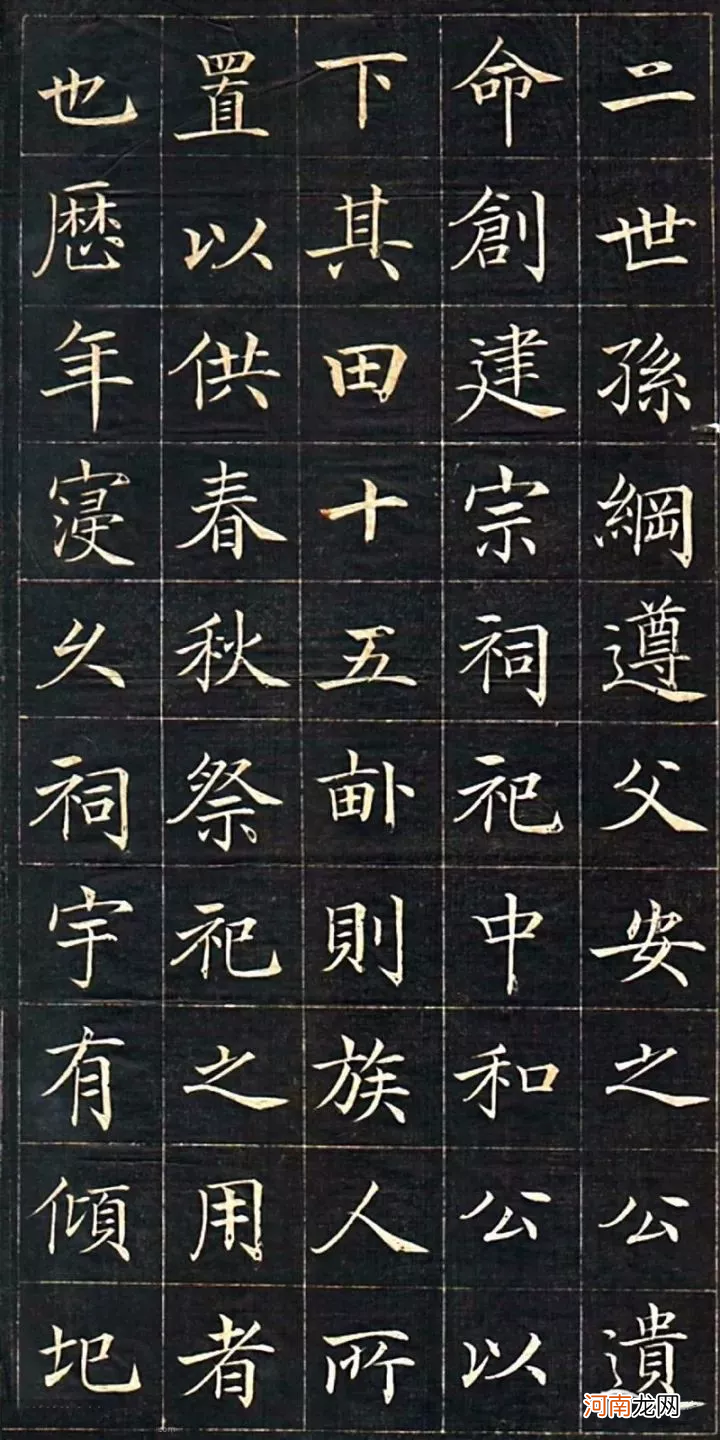 二世孫綱遵父安之公遺
命創建宗祠祀中和公以
下其田十五畝則族人所
置以供春秋祭祀之用者
也歷年寖久祠宇有傾圯
河南龙网